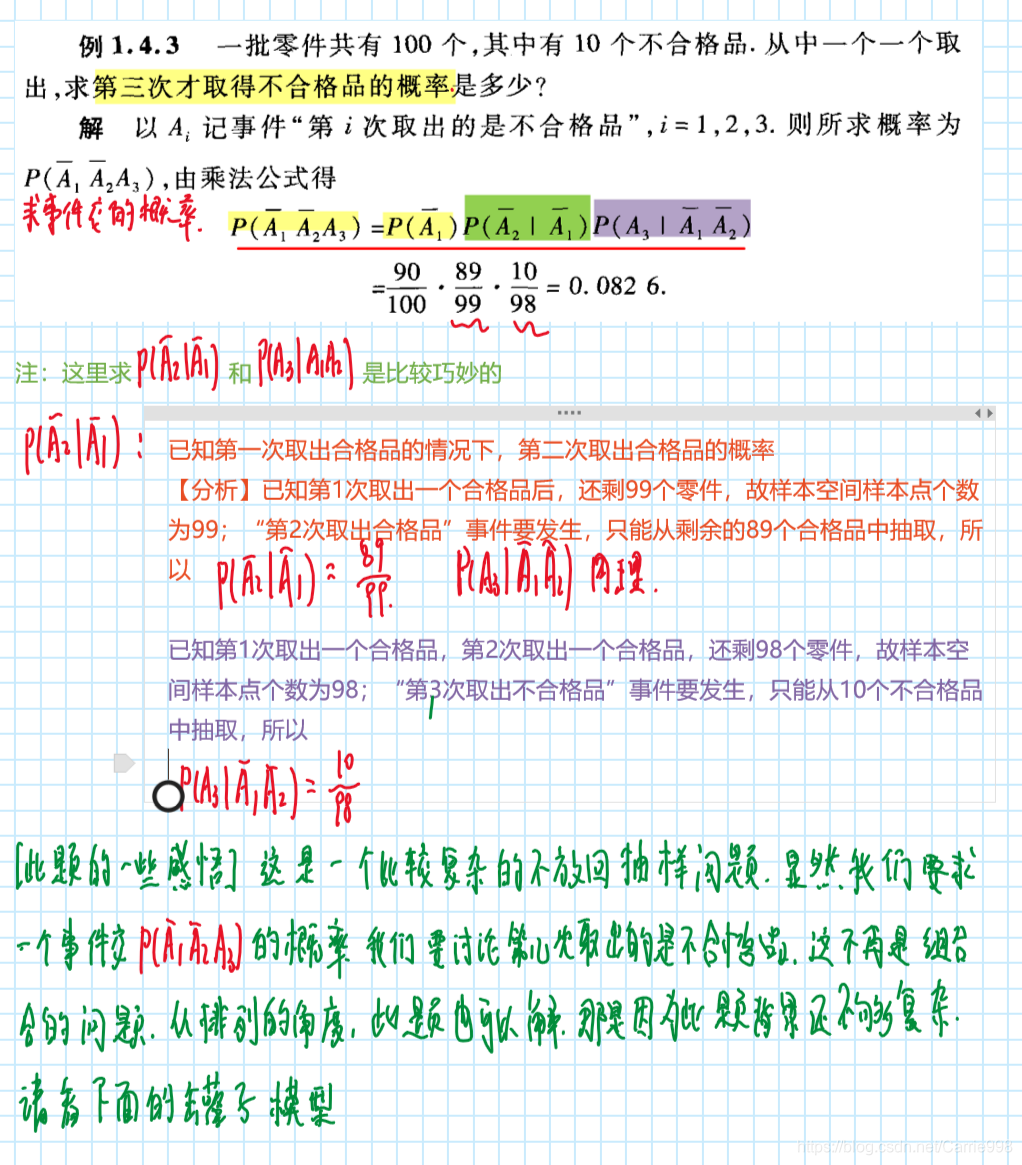 例 1.4.3 一批零件共有 100 个,其中有 10 个不合格品. 从中一个一个取
出,求第三次才取得不合格品的概率是多少?
解 以 Aᵢ 记事件“第 i 次取出的是不合格品”,i=1,2,3. 则所求概率为
P(A̅₁ A̅₂A₃),由乘法公式得
求事件交的概率.
P(A̅₁ A̅₂A₃) =P(A̅₁)P(A̅₂ | A̅₁)P(A₃ | A̅₁ A̅₂)
=90/100 · 89/99 · 10/98 = 0.082 6.
注：这里求 P(A̅₂|A̅₁) 和 P(A₃|A₁A₂) 是比较巧妙的
P(A̅₂|A̅₁)：
已知第一次取出合格品的情况下，第二次取出合格品的概率
【分析】已知第1次取出一个合格品后，还剩99个零件，故样本空间样本点个数
为99；“第2次取出合格品”事件要发生，只能从剩余的89个合格品中抽取，所
以 P(A̅₂|A̅₁) = 89/99. P(A₃|A̅₁A̅₂) 同理.
已知第1次取出一个合格品，第2次取出一个合格品，还剩98个零件，故样本空
间样本点个数为98；“第3次取出不合格品”事件要发生，只能从10个不合格品
中抽取，所以
P(A₃|A̅₁A̅₂) = 10/98
[此题的一些感悟] 这是一个比较复杂的不放回抽样问题. 显然,我们要求
一个事件交 P(A̅₁A̅₂A₃) 的概率 我们要讨论第几次取出的是不合格品. 这不再是组合
合的问题. 从排列的角度, 此题也可以解. 那是因为此题背景还不够复杂.
请看下面的 模型
https://blog.csdn.net/Carrie998